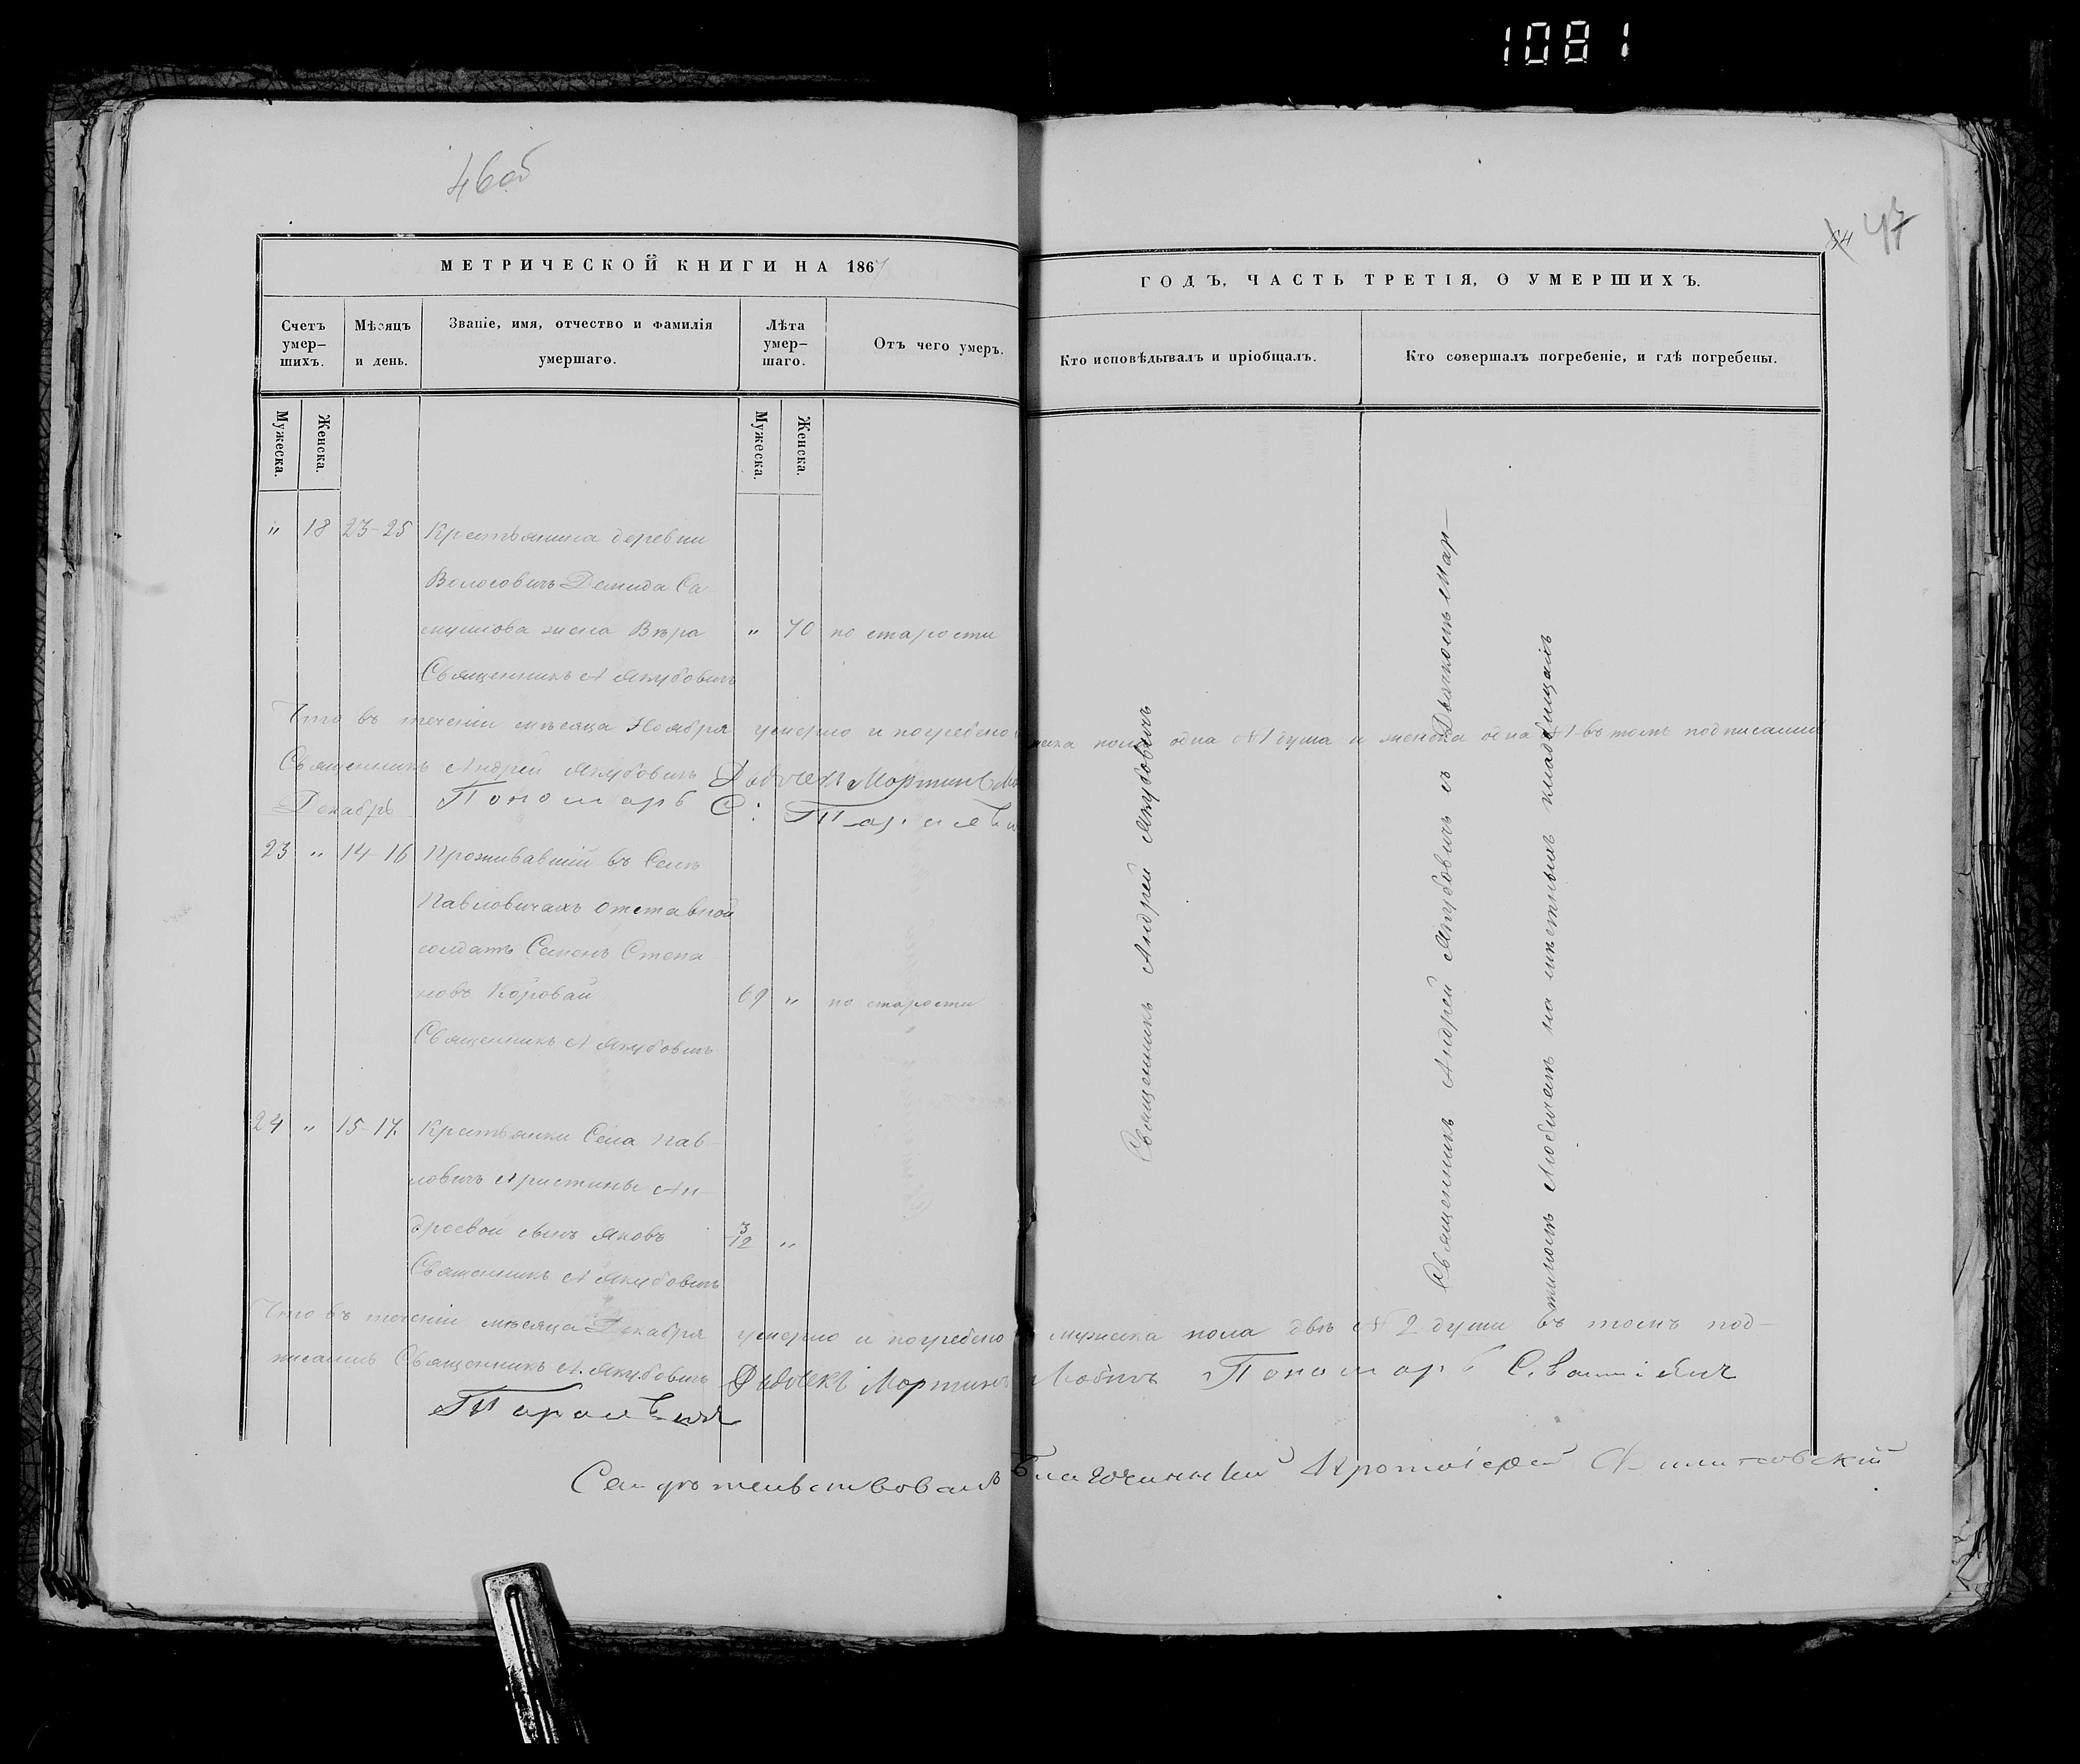 1081
46об
54 47
МЕТРИЧЕСКОЙ КНИГИ НА 1867
ГОДЪ, ЧАСТЬ ТРЕТІЯ, О УМЕРШИХЪ.
Счетъ умер–шихъ.
Мѣсяцъ и день.
Званіе, имя, отчество и фамилія умершаго.
Лѣта умер–шаго.
Отъ чего умеръ.
Кто исповѣдывалъ и пріобщалъ.
Кто совершалъ погребеніе, и гдѣ погребены.
Мужеска. Женска.
Мужеска. Женска.
" 18 23-25 Крестьянина деревни
Волосовичъ Демида Са-
мушова жена Вѣра " 70 по старости
Священникъ А Якубовичъ
Что въ теченіи мѣсяца Ноября умерло и погребено мужеска пола одна №1 душа и женска одна №1 въ томъ подписались
Священникъ Андрей Якубовичъ Дьячекъ Мартинъ
Декабрь Пономарь С:
23 " 14-16 Проживавшій въ Селѣ
Павловичахъ отставной
солдатъ Семенъ Степа
новъ Коровай 69 " по старости
Священникъ А Якубовичъ
24 " 15-17 Крестьянки Села Пав-
ловичъ Христины Ан-
дреевой сынъ Яковъ 3/12 "
Священникъ А Якубовичъ
Что въ теченіи мѣсяца Декабря умерло и погребено мужеска пола двѣ №2 души въ томъ под-
писались Священникъ А. Якубовичъ Дьячекъ Мартинъ Любичъ Пономарь С.
Священникъ Андрей Якубовичъ
Священникъ Андрей Якубовичъ съ Дьячкомъ Мар–
тиномъ Любичемъ на мѣстныхъ кладбищахъ
Свидѣтельствовалъ Благочинный Протоіерей